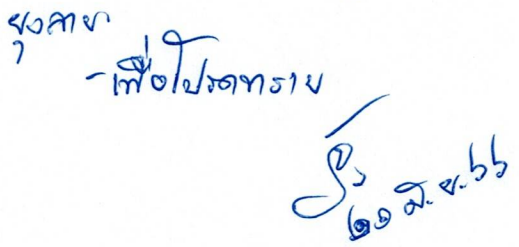 ยุงลาย
-เพื่อโปรดทราบ
๒๑ มิ.ย.๖๖